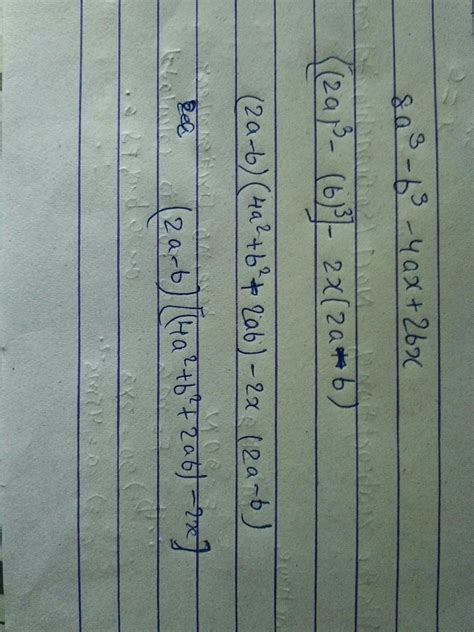 8a³ - b³ - 4ax + 2bx
[(2a)³ - (b)³] - 2x(2a - b)
(2a-b) (4a² + b² + 2ab) - 2x (2a-b)
(2a-b) [(4a² + b² + 2ab) - 2x]